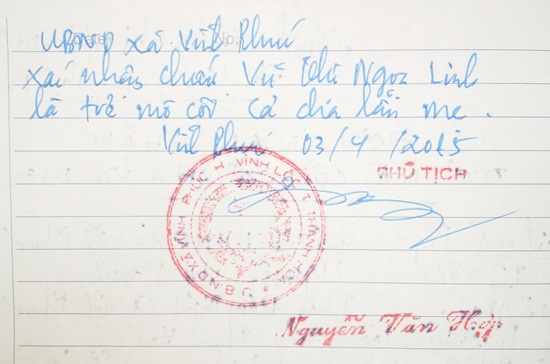 UBND xã Vĩnh Phúc
No.
xác nhận cháu Vũ Thị Ngọc Linh
là trẻ mồ côi cả cha lẫn mẹ.
Vĩnh Phúc 03/4/2015
CHỦ TỊCH
U.B.N.D XÃ VĨNH PHÚC H. VĨNH LỘC T. THANH HÓA
Nguyễn Văn Hợp